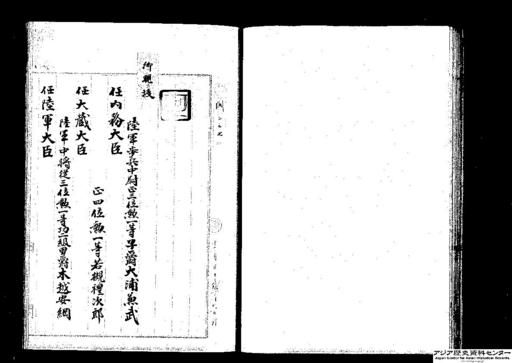 御親授
可
陸軍歩兵中尉正三位勲一等子爵大浦兼武
任内務大臣
正四位勲一等若槻禮次郎
任大蔵大臣
陸軍中将従三位勲一等功二級男爵木越安綱
任陸軍大臣
アジア歴史資料センター
Japan Center for Asian Historical Records